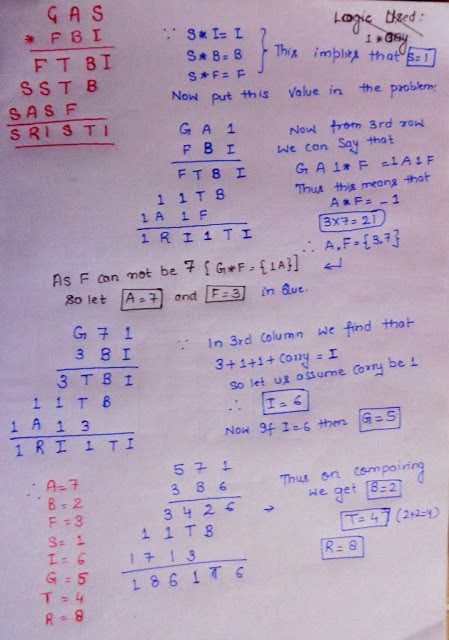 G A S
* F B I
F T B I
S S T B
S A S F
S R I S T I
∵ S * I = I
S * B = B
S * F = F
} This implies that S=1
Logic Used:
Now put this value in the problem:
G A 1
F B I
F T B I
1 1 T B
1 A 1 F
1 R I 1 T I
Now from 3rd row
we can say that
G A 1 * F = 1 A 1 F
Thus this means that
A * F = _ 1
3x7 = 21
∴ A, F = {3,7}
As F can not be 7 { G*F = {1A}]
So let A=7 and F=3 in Que.
G 7 1
3 B I
3 T B I
1 1 T B
1 A 1 3
1 R I 1 T I
∵ In 3rd column we find that
3+1+1+carry = I
So let us assume carry be 1
∴ I = 6
Now If I=6 then G=5
5 7 1
3 B 6
3 4 2 6
1 1 T B
1 7 1 3
1 8 6 1 T 6
→ Thus on comparing
we get B=2
T=4 (2+2=4)
R=8
∴ A=7
B=2
F=3
S=1
I=6
G=5
T=4
R=8